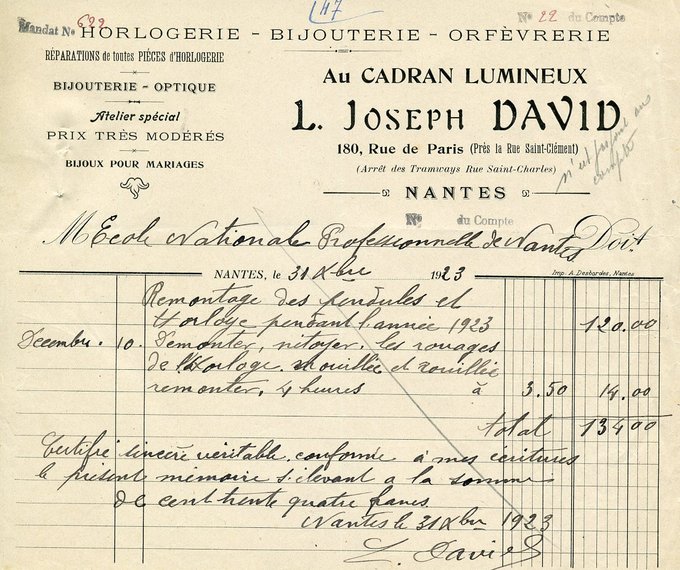 Mandat No 622
47
No 22 du Compte
HORLOGERIE - BIJOUTERIE - ORFÈVRERIE
RÉPARATIONS de toutes PIÈCES d'HORLOGERIE
BIJOUTERIE - OPTIQUE
Atelier spécial
PRIX TRÈS MODÉRÉS
BIJOUX POUR MARIAGES
AU CADRAN LUMINEUX
L. JOSEPH DAVID
180, Rue de Paris (Près la Rue Saint-Clément)
(Arrêt des Tramways Rue Saint-Charles)
NANTES
n'est au
compte
No du Compte
M Ecole Nationale Professionnelle de Nantes Doit
NANTES, le 31 Xbre 1923
Imp. A. Desbordes, Nantes
Remontage des pendules et
Horloge pendant l'année 1923 120.00
Decembre. 10. Demonter, netoyer, les rouages
de l'Horloge mouillée et rouillée
remonter, 4 heures à 3.50 14.00
total 134 00
Certifié sincère véritable conforme à mes ecritures
le présent mémoire s'elevant a la somme
de cent trente quatre francs
Nantes le 31 Xbre 1923
L. David